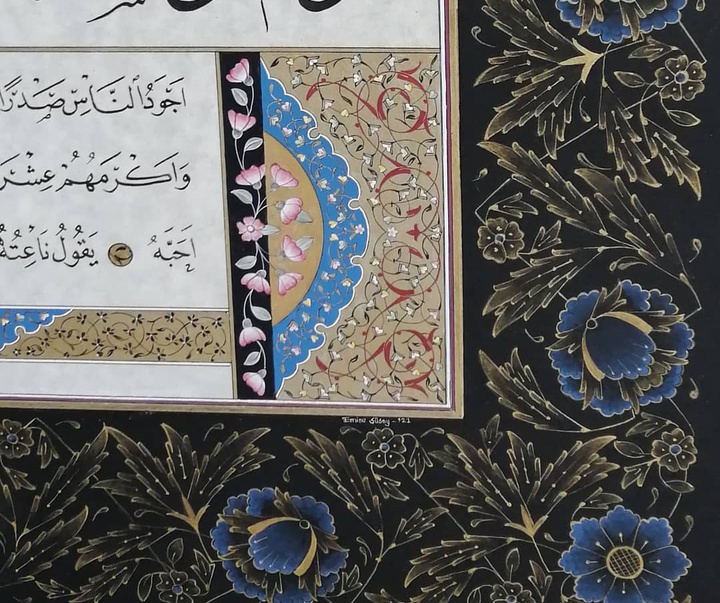 اَجْوَدُ النَّاسِ صَدْرًا
وَاَكْرَمُهُمْ عِشْرَ
اَحَبَّهُ يَقُولُ نَاعِتُهُ
Emine Süsoy - '21